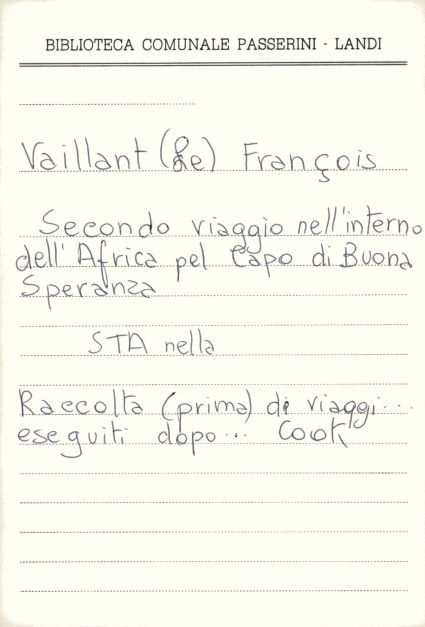 BIBLIOTECA COMUNALE PASSERINI - LANDI
Vaillant (Le) François
Secondo viaggio nell'interno
dell'Africa pel Capo di Buona
Speranza
STA nella
Raccolta (prima) di viaggi...
eseguiti dopo... Cook